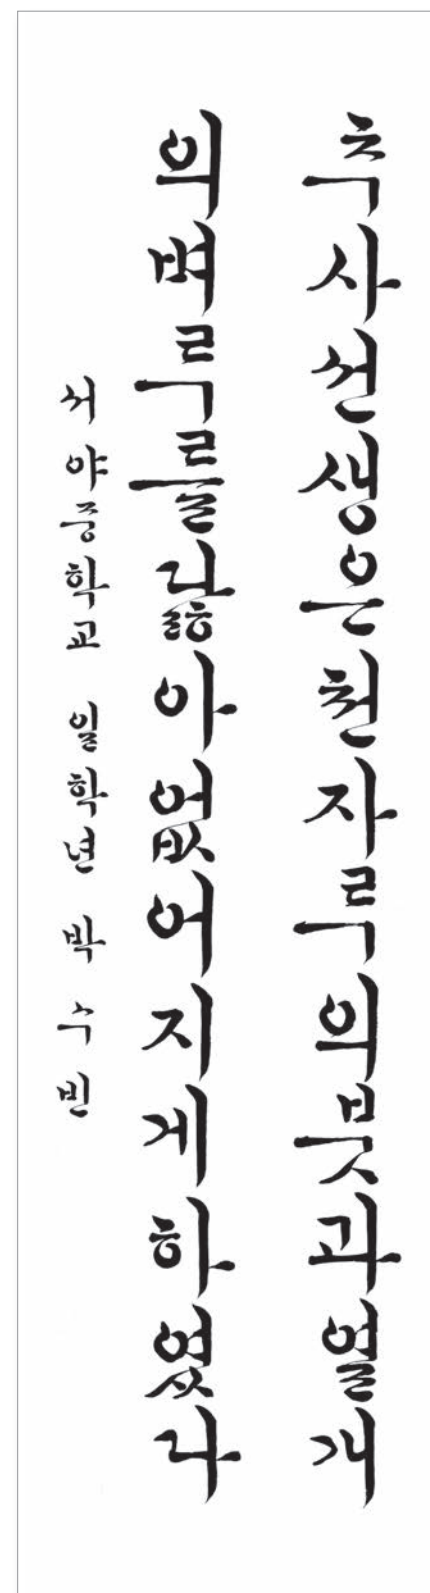 추사선생은천자루의붓과열개
의벼루를닳아없어지게하였다
서야중학교 일학년 박수빈